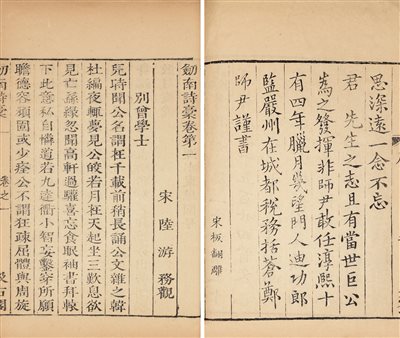 思深遠一念不忘
君 先生之志且有當世巨公
為之發揮非師尹敢任淳熙十
有四年臘月幾望門人迪功郎
監嚴州在城都稅務括蒼鄭
師尹謹書
宋板翻雕
劒南詩稾卷第一
宋 陸游 務觀
別曾學士
兒時聞公名謂在千載前稍長誦公文雜之韓
杜編夜輒夢見公皎若月在天起坐三歎息欲
見亡繇緣忽聞高軒過驩喜忘食眠袖書拜轅
下此意私自憐道若九逵衢小智妄鑿穿所願
瞻德容頑固或少痊公不謂狂疎屈體與周旋
劒南詩稾 卷之一 汲古閣